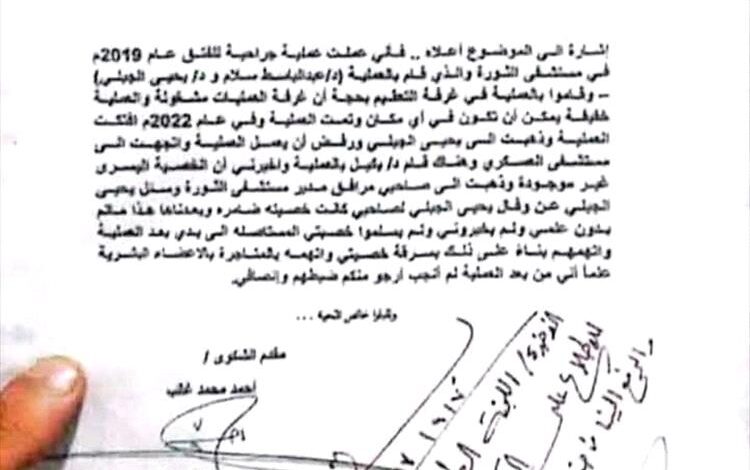 إشارة الى الموضوع أعلاه .. فأني عملت عملية جراحية للفتق عام 2019م
في مستشفى الثورة والذي قام بالعملية (د/عبدالباسط سلام و د/ يحيى الجبلي)
– وقاموا بالعملية في غرفة التعقيم بحجة أن غرفة العمليات مشغولة والعملية
خفيفة يمكن أن تكون في أي مكان وتمت العملية وفي عام 2022م افتكت
العملية وذهبت الى يحيى الجبلي ورفض أن يعمل العملية واتجهت الى
مستشفى العسكري وهناك قام د/ بكيل بالعملية واخبرني أن الخصية اليسرى
غير موجودة وذهبت الى صاحبي مرافق مدير مستشفى الثورة وسئل يحيى
الجبلي عن وقال يحيى الجبلي لصاحبي كانت خصيته ضامره وبعدناها هذا ماتم
بدون علمي ولم يخبروني ولم يسلموا خصيتي المستاصله الى يدي بعد العملية
واتهمهم بناءً على ذلك بسرقة خصيتي واتهمه بالمتاجرة بالاعضاء البشرية
علماً أني من بعد العملية لم أنجب أرجو منكم ضبطهم وإنصافي.
وتقبلوا خالص التحية ...
مقدم الشكوى /
أحمد محمد غالب
الأخوة / اللجنة
للاطلاع على
والرفع الينا